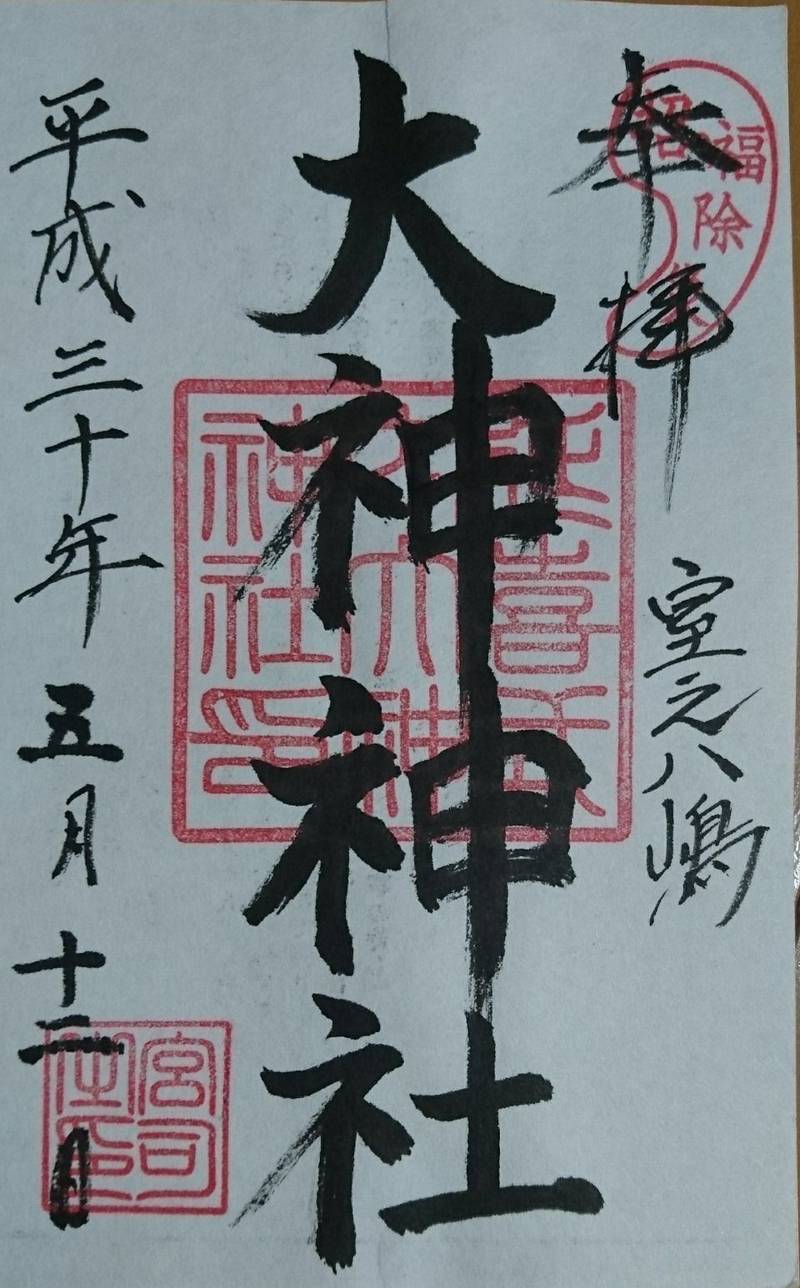 奉拝
室之八嶋
大神神社
平成三十年五月十二日
福除
延喜式
大神
神社印
宮司
之印